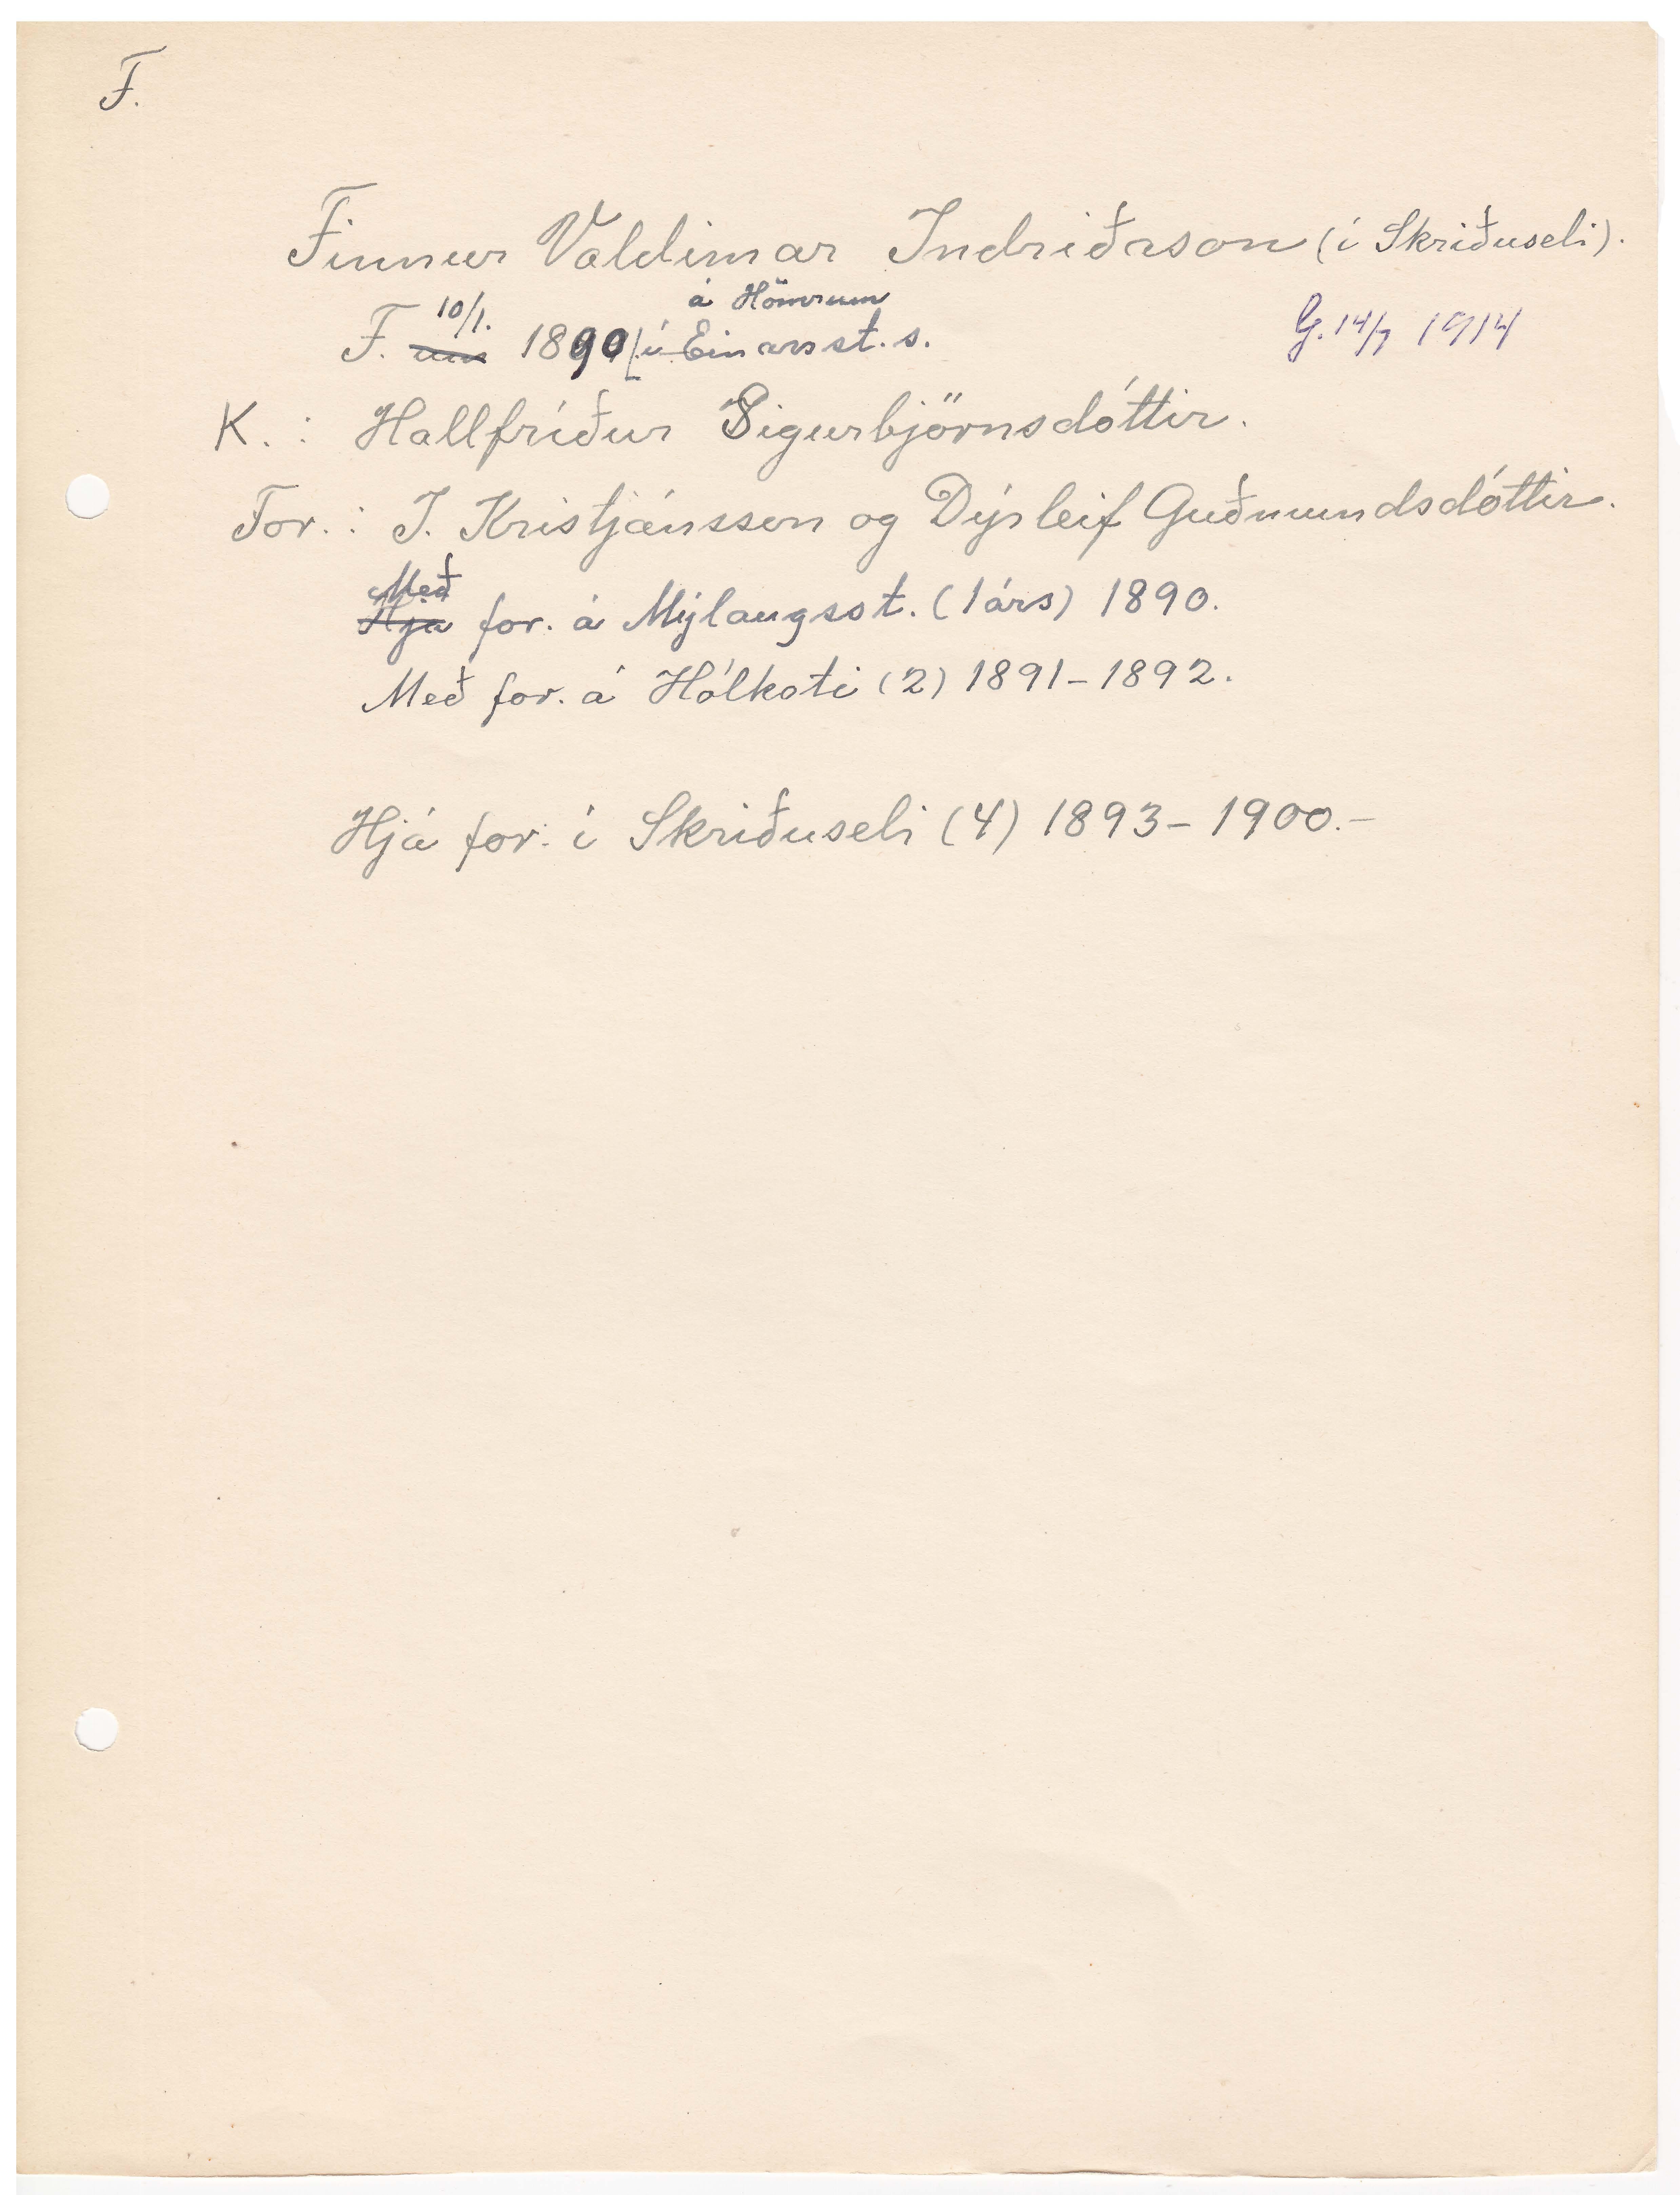 F.
Finnur Valdimar Indriðason (í Skriðuseli).
10/1. á Hömrum
F. um 1890 [í Einarsst. s. G. 14/7 1914
K. : Hallfríður Sigurbjörnsdóttir.
For. : I. Kristjánsson og Dýrleif Guðmundsdóttir.
Með
Hjá for. á Mýlaugsst. (1 árs) 1890.
Með for. á Hólkoti (2) 1891 - 1892.
Hjá for. í Skriðuseli (4) 1893 - 1900.-